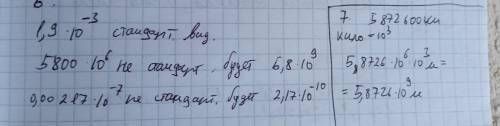 1,9 · 10⁻³ стандарт вид.
5800 · 10⁶ не стандарт. будет 6,8 · 10⁹
0,00217 · 10⁻⁷ не стандарт. будет 2,17 · 10⁻¹⁰
7 5872600 км
кило – 10³
5,8726 · 10⁶ · 10³ м =
= 5,8726 · 10⁹ м